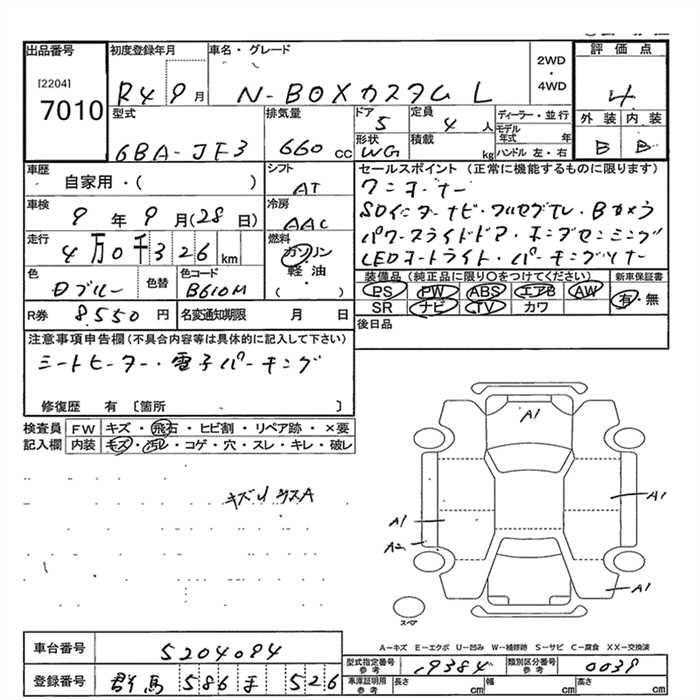 出品番号 初度登録年月 車名・グレード 2WD ・ 4WD 評価点
[2204]
7010 R4 9月 N-BOXカスタム L 4
型式 排気量 ドア 定員 ディーラー・並行 外装 内装
6BA-JF3 660cc 5 4人 モデル年式 年 B B
形状 積載 kg ハンドル 左・右
WG
車歴 シフト セールスポイント(正常に機能するものに限ります)
自家用・( ) AT ワンオーナー
車検 冷房 SDインターナビ・フルセグTV・Bカメラ
9年9月(28日) AAC パワースライドドア・ホンダセンシング
走行 燃料 LEDオートライト・パーキングソナー
4万0千326km ガソリン
軽油
( )
色 色替 色コード 装備品(純正品に限り○をつけてください) 新車保証書
Dブルー B610M PS PW ABS エアB AW 有・無
SR ナビ TV カワ
R券 8,550円 名変通知期限 月 日 後日品
注意事項申告欄(不具合内容等は具体的に記入して下さい)
シートヒーター・電子パーキング
修復歴 有 〔箇所 〕
検査員 FW キズ・飛石・ヒビ割・リペア跡・×要
記入欄 内装 キズ・汚レ・コゲ・穴・スレ・キレ・破レ
A1
A1
A1
A2
A1
スペア
A-キズ E-エクボ U-凹み W-補修跡 S-サビ C-腐食 XX-交換済
車台番号 5204094
型式指定番号 参考 19384 類別区分番号 参考 0039
登録番号 群馬 586 526
車庫証明用 参考 長さ cm 幅 cm 高さ cm